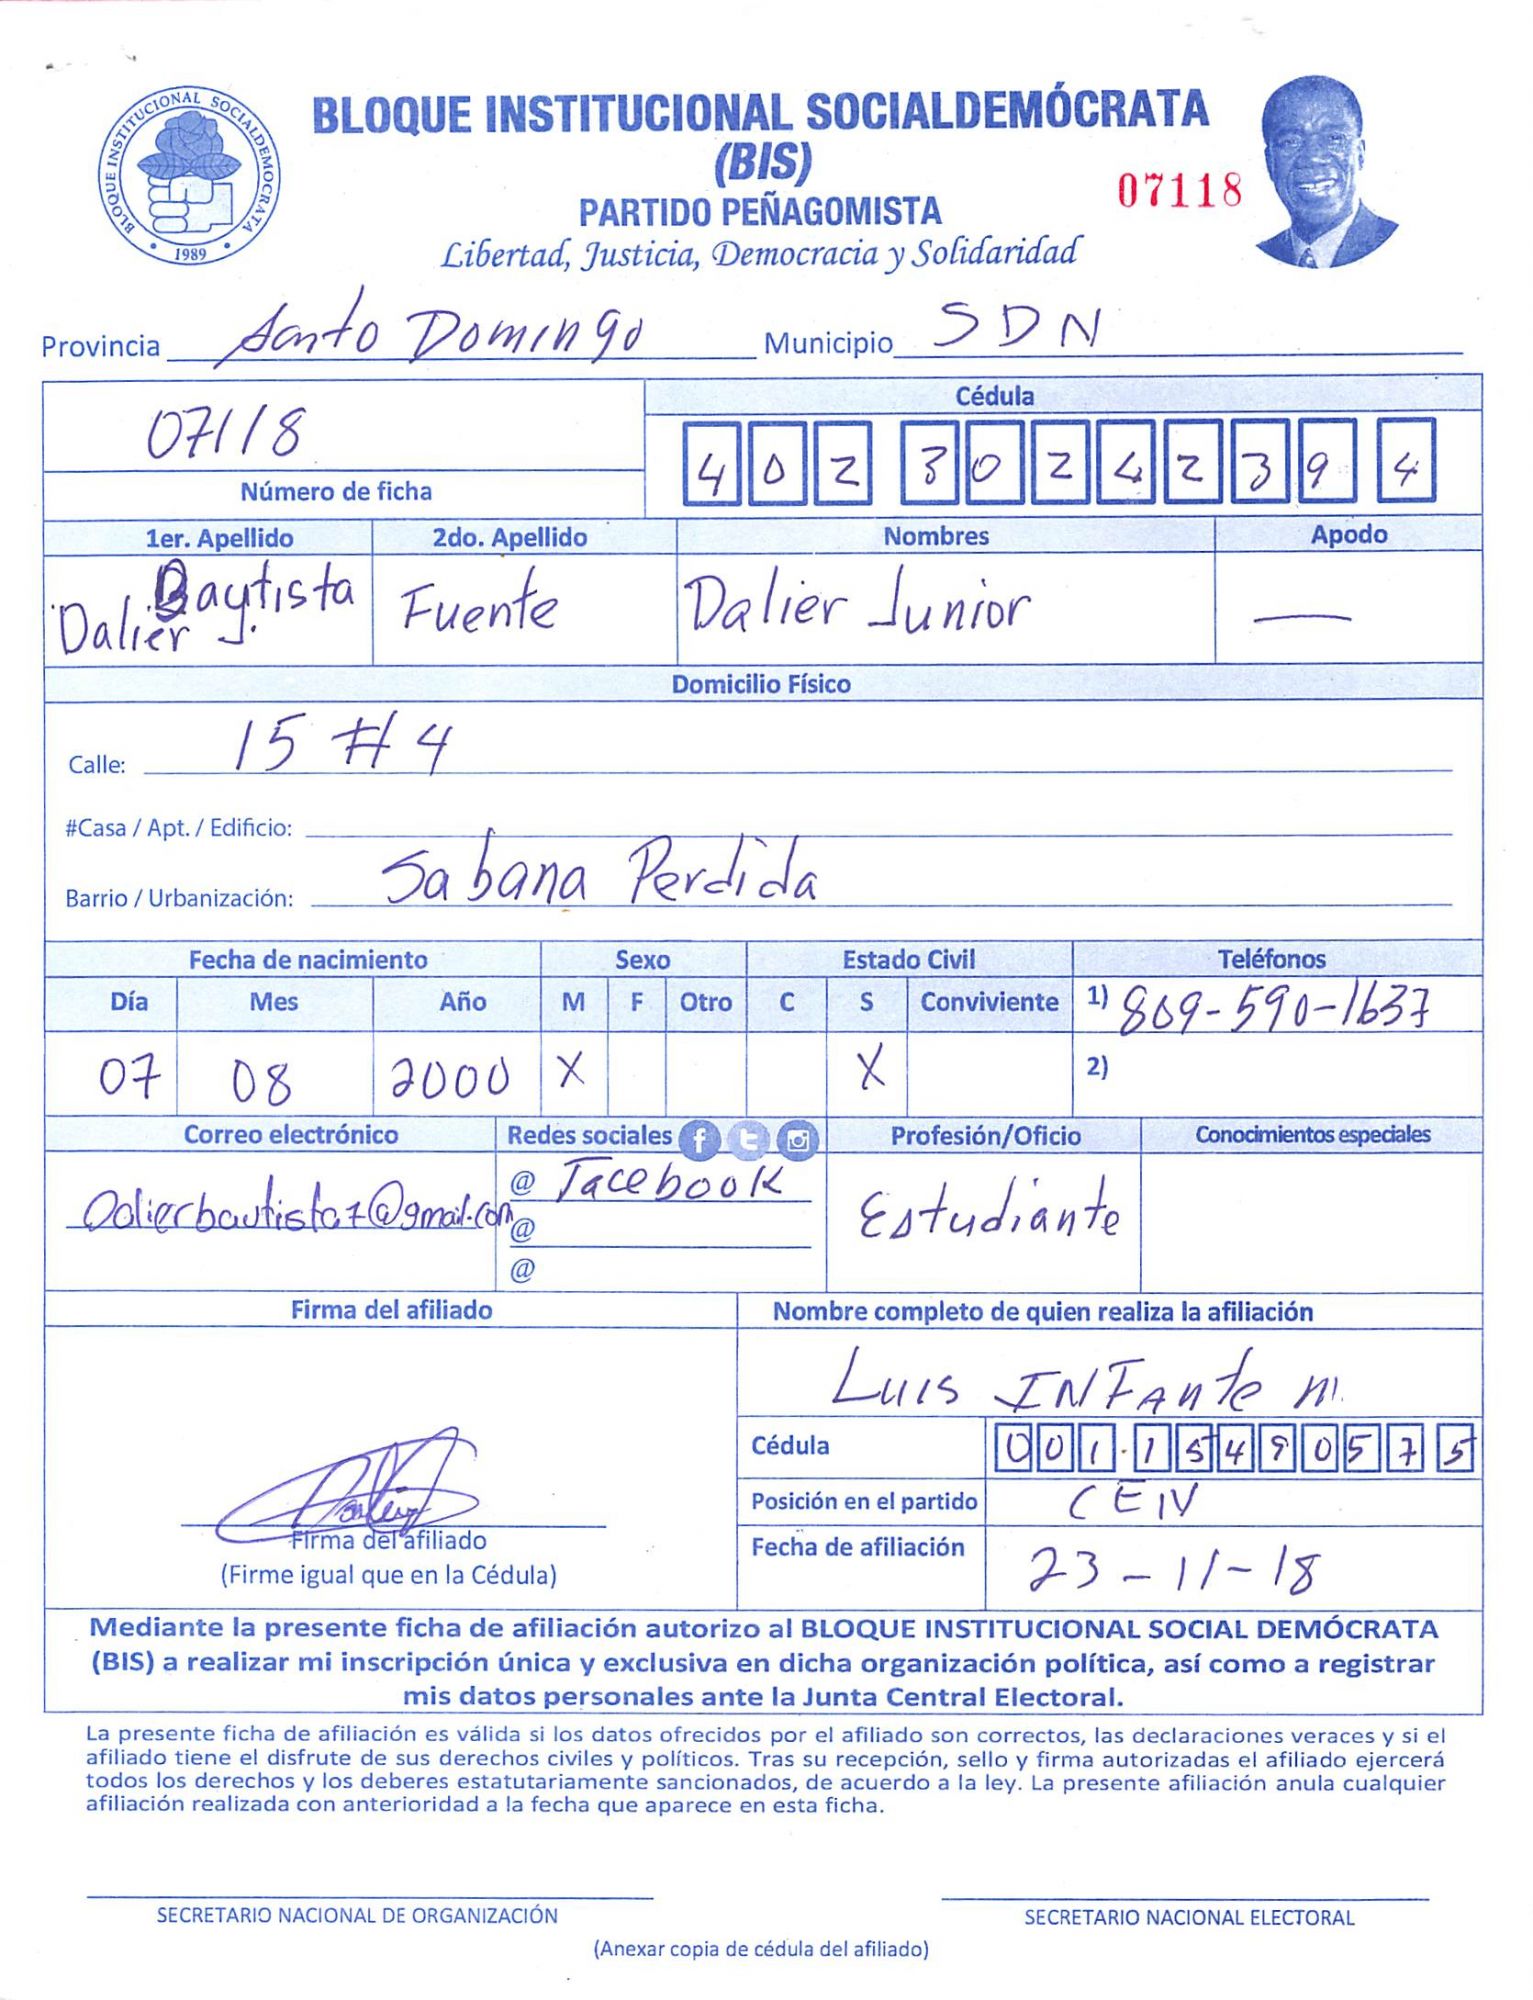 BLOQUE INSTITUCIONAL SOCIALDEMOCRATA
1989
BLOQUE INSTITUCIONAL SOCIALDEMÓCRATA
(BIS)
PARTIDO PEÑAGOMISTA
07118
Libertad, Justicia, Democracia y Solidaridad
Provincia Santo Domingo Municipio SDN
07118
Número de ficha
Cédula
402 3024239 4
1er. Apellido 2do. Apellido Nombres Apodo
Bautista
Dalier J. Fuente Dalier Junior —
Domicilio Físico
Calle: 15 #4
#Casa / Apt. / Edificio:
Barrio / Urbanización: Sabana Perdida
Fecha de nacimiento Sexo Estado Civil Teléfonos
Día Mes Año M F Otro C S Conviviente 1) 809-590-1637
07 08 2000 X X 2)
Correo electrónico Redes sociales Profesión/Oficio Conocimientos especiales
@ Facebook
Dalierbautista7@gmail.com @ Estudiante
@
Firma del afiliado Nombre completo de quien realiza la afiliación
Luis INFante m.
Cédula 001.1549057 5
Posición en el partido CEIV
Firma del afiliado
(Firme igual que en la Cédula)
Fecha de afiliación 23-11-18
Mediante la presente ficha de afiliación autorizo al BLOQUE INSTITUCIONAL SOCIAL DEMÓCRATA
(BIS) a realizar mi inscripción única y exclusiva en dicha organización política, así como a registrar
mis datos personales ante la Junta Central Electoral.
La presente ficha de afiliación es válida si los datos ofrecidos por el afiliado son correctos, las declaraciones veraces y si el
afiliado tiene el disfrute de sus derechos civiles y políticos. Tras su recepción, sello y firma autorizadas el afiliado ejercerá
todos los derechos y los deberes estatutariamente sancionados, de acuerdo a la ley. La presente afiliación anula cualquier
afiliación realizada con anterioridad a la fecha que aparece en esta ficha.
SECRETARIO NACIONAL DE ORGANIZACIÓN SECRETARIO NACIONAL ELECTORAL
(Anexar copia de cédula del afiliado)